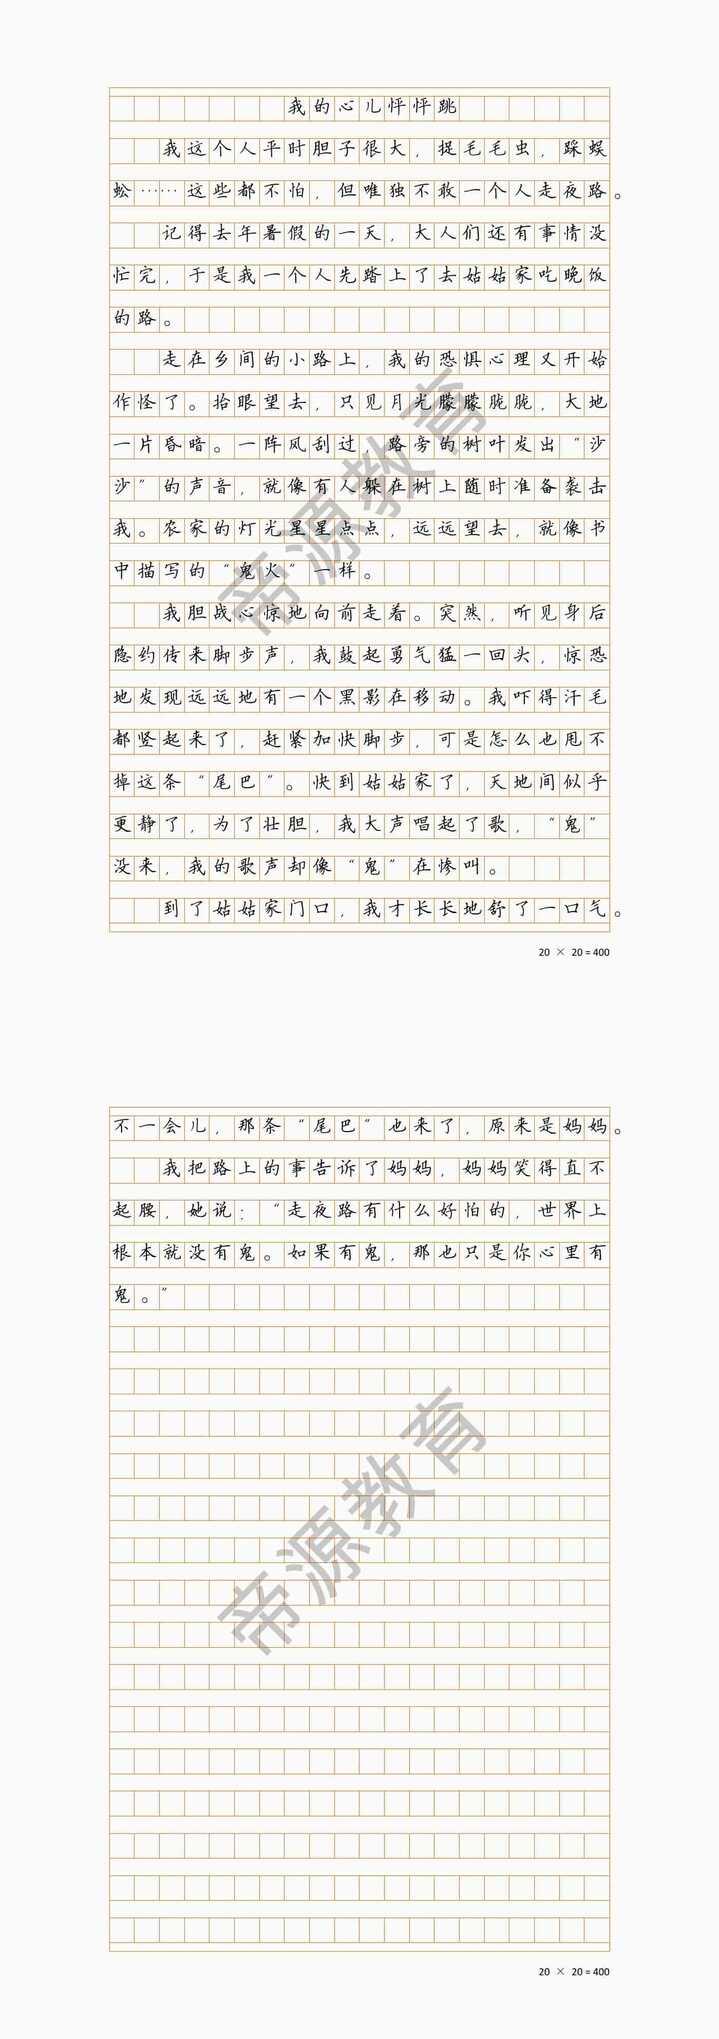 我的心儿怦怦跳
我这个人平时胆子很大，捉毛毛虫，踩蜈
蚣……这些都不怕，但唯独不敢一个人走夜路。
记得去年暑假的一天，大人们还有事情没
忙完，于是我一个人先踏上了去姑姑家吃晚饭
的路。
走在乡间的小路上，我的恐惧心理又开始
作怪了。抬眼望去，只见月光朦朦胧胧，大地
一片昏暗。一阵风刮过，路旁的树叶发出“沙
沙”的声音，就像有人躲在树上随时准备袭击
我。农家的灯光星星点点，远远望去，就像书
中描写的“鬼火”一样。
我胆战心惊地向前走着。突然，听见身后
隐约传来脚步声，我鼓起勇气猛一回头，惊恐
地发现远远地有一个黑影在移动。我吓得汗毛
都竖起来了，赶紧加快脚步，可是怎么也甩不
掉这条“尾巴”。快到姑姑家了，天地间似乎
更静了，为了壮胆，我大声唱起了歌，“鬼”
没来，我的歌声却像“鬼”在惨叫。
到了姑姑家门口，我才长长地舒了一口气。
20 × 20 = 400
不一会儿，那条“尾巴”也来了，原来是妈妈。
我把路上的事告诉了妈妈，妈妈笑得直不
起腰，她说：“走夜路有什么好怕的，世界上
根本就没有鬼。如果有鬼，那也只是你心里有
鬼。”
20 × 20 = 400
帝源教育
帝源教育